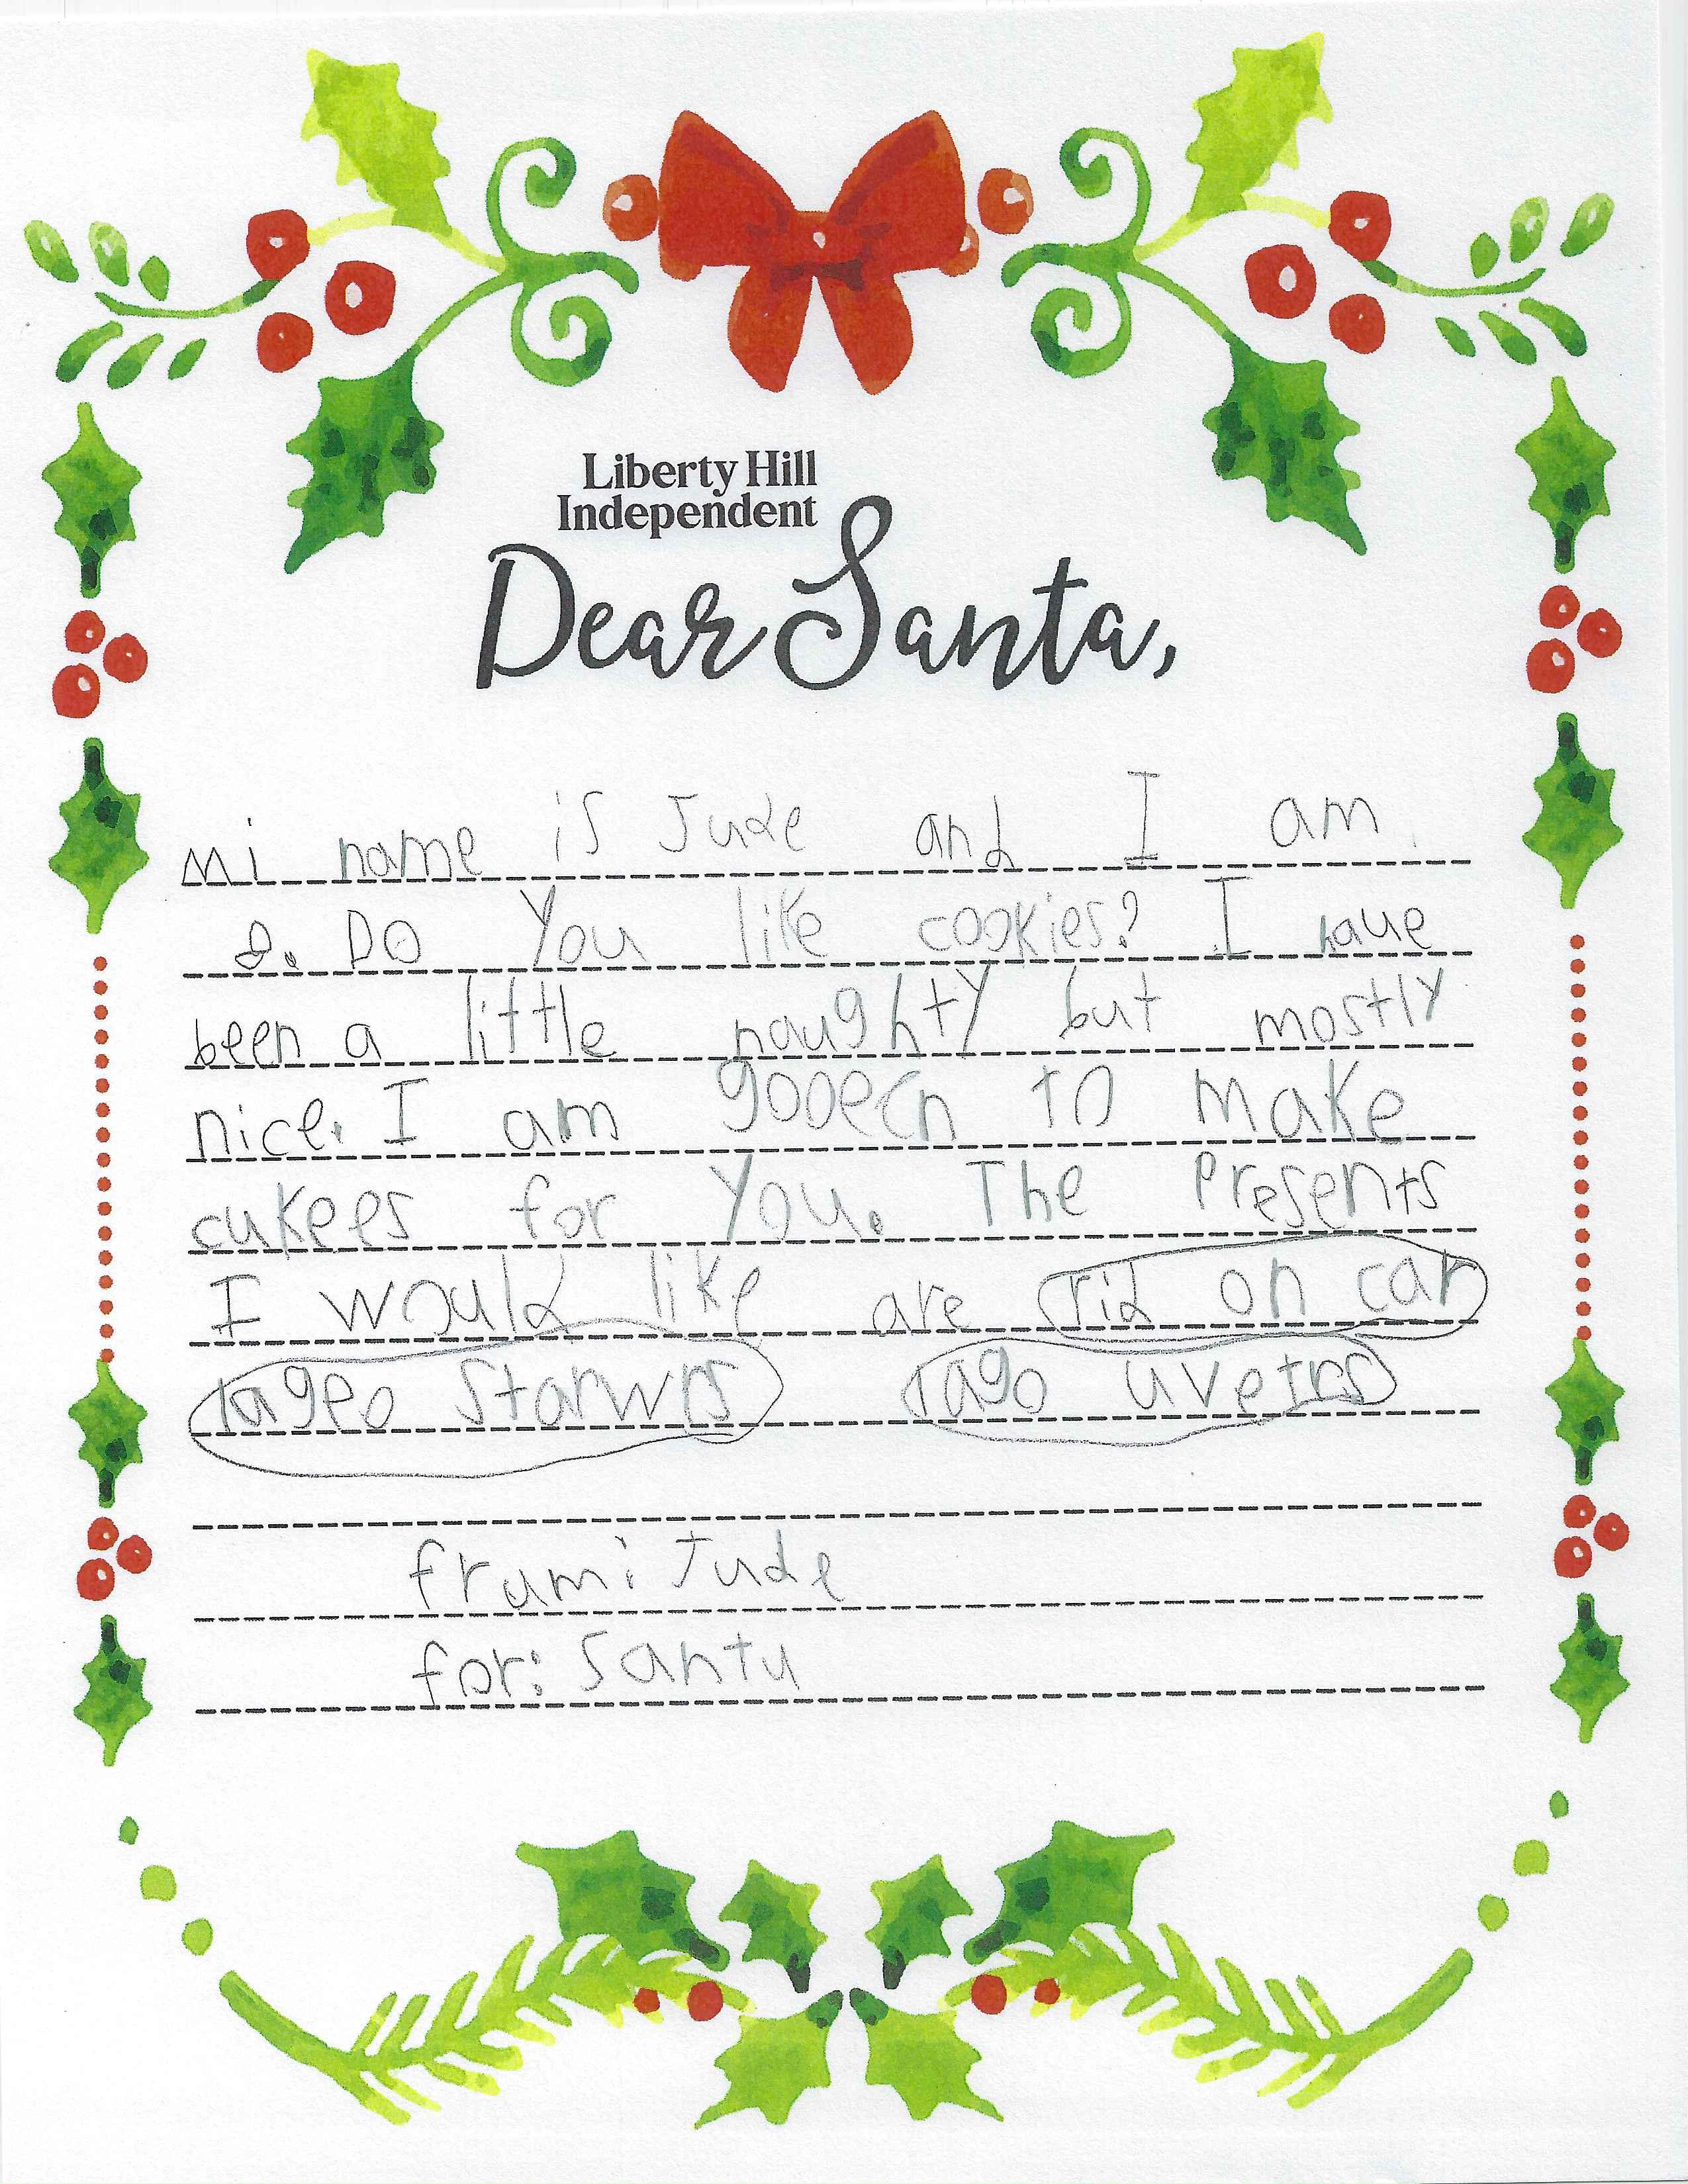 Liberty Hill
Independent
Dear Santa,
mi name is Jude and I am
8. Do You like cookies? I have
been a little naughty but mostly
nice. I am gooeen to make
cukees for You. The Presents
I would like are rid on car
lageo Starwrs lago uvetrs
frum: Jude
for: Santu